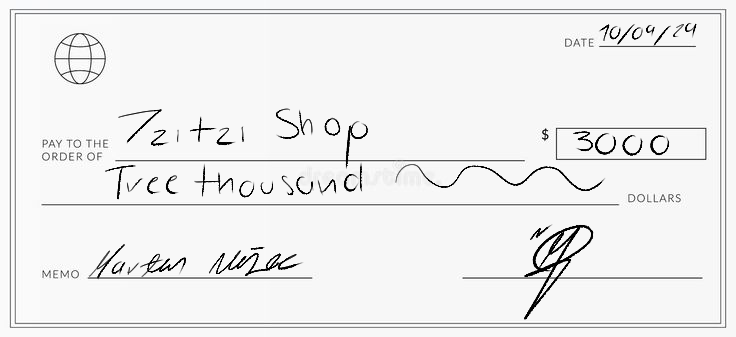 DATE 10/09/24
PAY TO THE
ORDER OF Tzitzi Shop $ 3000
Tree thousand DOLLARS
MEMO